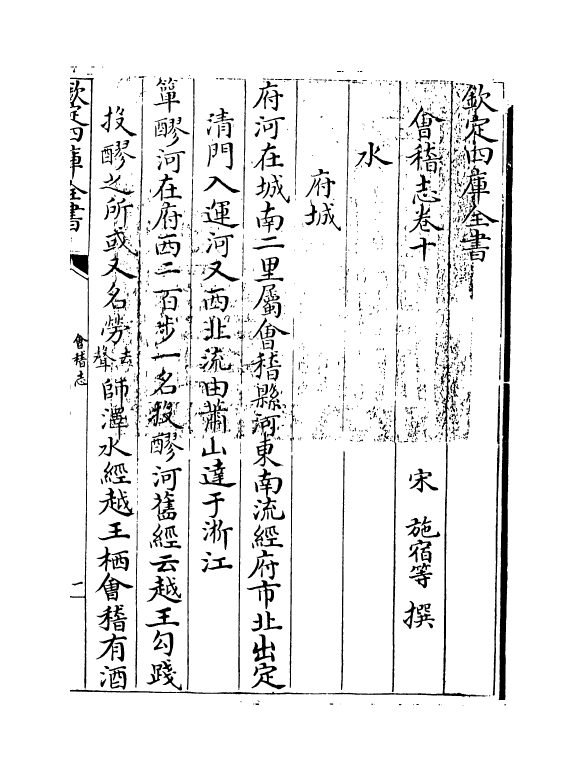 欽定四庫全書
會稽志卷十
宋 施宿等 撰
水
府城
府河在城南二里屬會稽縣河東南流經府市北出定
清門入運河又西北流由蕭山達于淛江
簞醪河在府西二百步一名投醪河舊經云越王勾踐
投醪之所或又名勞去聲師澤水經越王栖會稽有酒
欽定四庫全書
會稽志
一